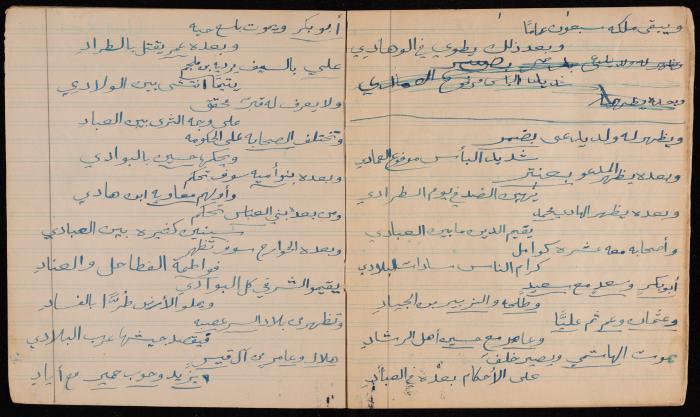 ويبقى ملكه سبعون عامًا
وبعد ذلك يطوي في الوهادي
ويظهر له ولد يدعى بضمر
شديد البأس مرفوع العمادي
وبعده يظهر المدعو بعنتر
يهين الضد في يوم الطرادي
وبعده يظهر الهادي محمد
يقيم الدين ما بين العبادي
وأصحابه معه عشره كوامل
كرام الناس سادات البلادي
أبو بكر وسعد مع سعيد
وطلحه والزبير بن الجياد
وعثمان وعمر ثم عليًا
وعامر مع حسين أهل الرشاد
موت الهاشمي ويصير خلف
على الأحكام بعده في العباد
أبو بكر ويموت بلسع حيه
وبعده عمر يقتل بالطراد
علي بالسيف يرديه بن ملجم
يتيمًا انتشى بين الولادي
ولا يعرف له قبر محقق
على وجه الثرى بين العباد
وتختلف الصحابه على الحكومه
ويحكمها حسين بالبوادي
وبعده بنو أميه سوف تحكم
وأولهم معاويه ابن هادي
ومن بعد بني العباس تحكم
سنين كثيره بين العبادي
وبعده الخوارج سوف تظهر
فواطمة الفطاحل والعناد
يقيموا الشر في كل البوادي
وتملو الأرض طرًا بالفساد
وتظهر في بلاد السرو عصبه
فيقصد جيشها عرب البلادي
هلال وعامر من آل قيس
يزيد وحرب حمير مع أياد